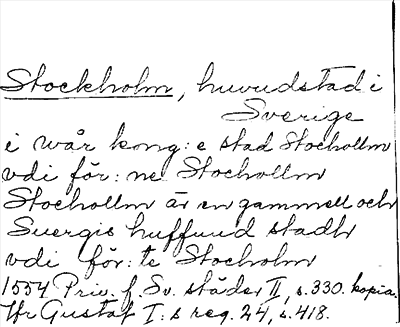 Stockholm, huvudstad i
Sverige
i wår kong:e stad Stocholm
vdi för:ne Stocholm
Stocholm är en gammell och
Suergis huffuud stadh
vdi för:te Stocholm
1554 Priv. f. Sv. städer II, s. 330. kopia.
Ur Gustaf I:s reg. 24, s. 418.